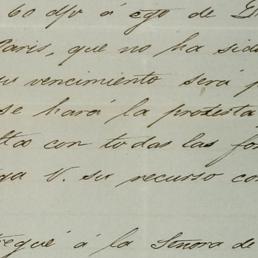 60 d/v á cgo de
Paris, que no ha sid
su vencimiento será p
se hará la protesta
ltas con todas las for
ga V. su recurso co
tregué á la Señora de